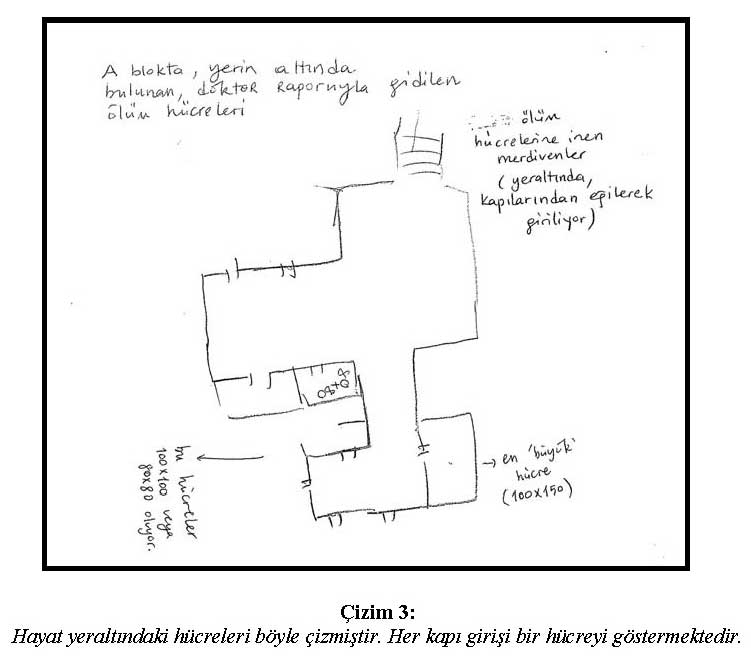 A blokta, yerin altında
bulunan, doktor raporuyla gidilen
ölüm hücreleri
ölüm
hücrelerine inen
merdivenler
(yeraltında,
kapılarından eğilerek
giriliyor)
80x80
bu hücreler
100x100 veya
80x80 oluyor.
→ en 'büyük'
hücre
(100x150)
Çizim 3:
Hayat yeraltındaki hücreleri böyle çizmiştir. Her kapı girişi bir hücreyi göstermektedir.